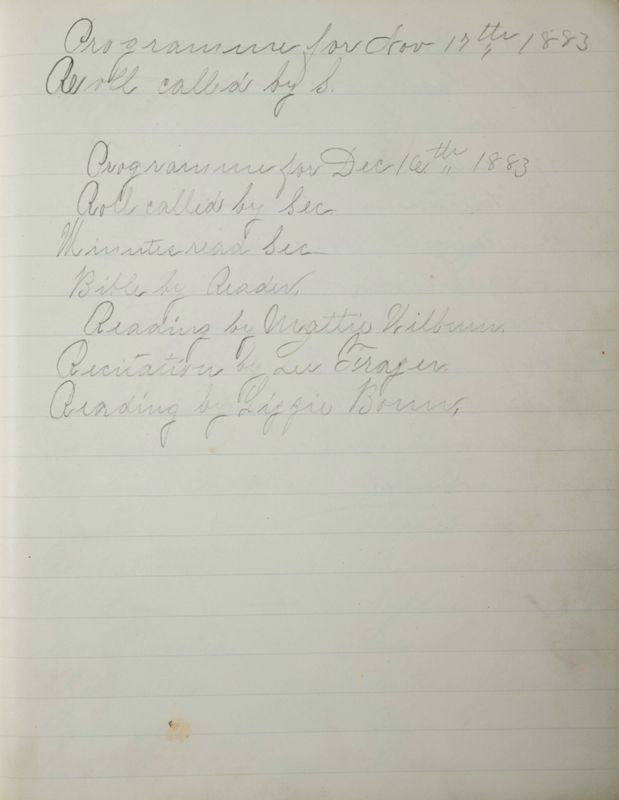 Programme for Nov 17th 1883
Roll called by S.
Programme for Dec 16th 1883
Roll called by Sec
Minutes read Sec
Bible by Reader,
Reading by Mattie Wilburn.
Recitation by Lee Frazer.
Reading by Lizzie